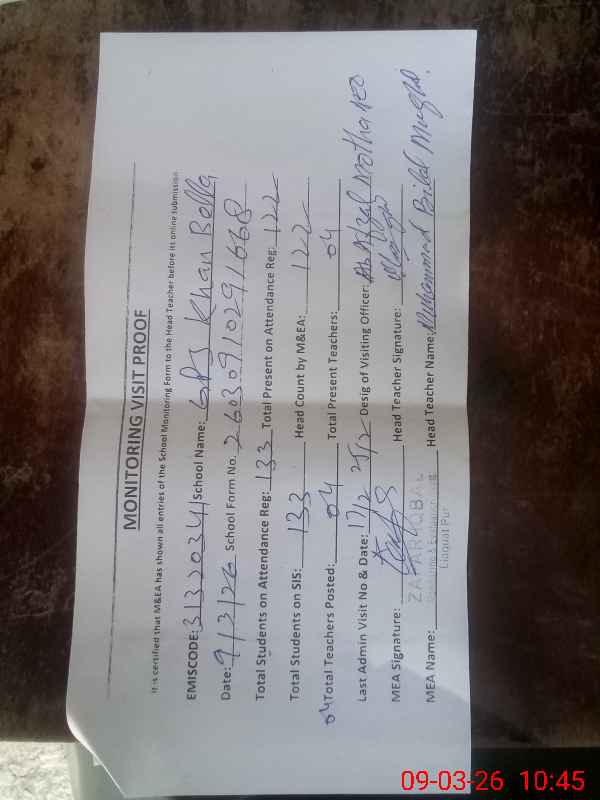 MONITORING VISIT PROOF
It is certified that M&EA has shown all entries of the School Monitoring Form to the Head Teacher before its online submission
EMISCODE: 31320341 School Name: GPS Khan Bella
Date: 9/3/26 School Form No. 26030910291668
Total Students on Attendance Reg: 133 Total Present on Attendance Reg: 122
Total Students on SIS: 133 Head Count by M&EA: 122
04 Total Teachers Posted: 04 Total Present Teachers: 04
Last Admin Visit No & Date: 17/2 25/2 Desig of Visiting Officer: Afzal
MEA Signature: Head Teacher Signature:
ZAFAR IQBAL
Monitoring & Evaluation
Liaquat Pur
MEA Name: Head Teacher Name: Muhammad Bilal Mughal.
09-03-26 10:45